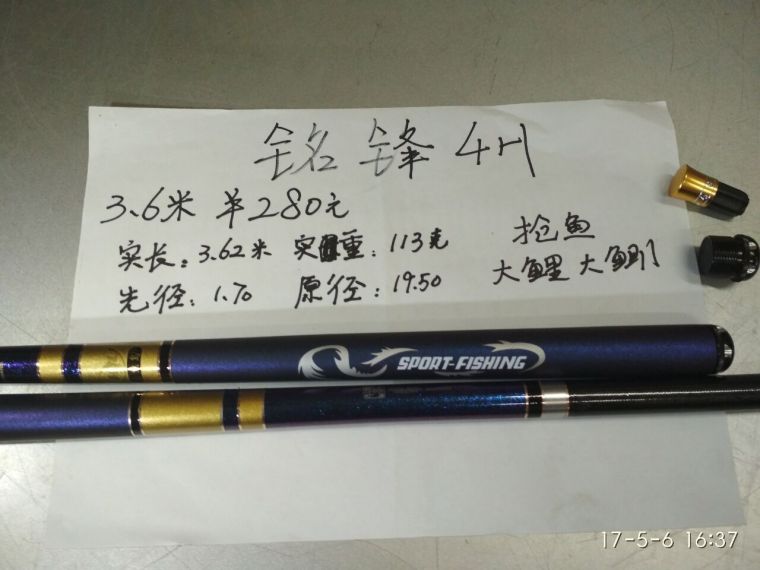 铭锋 4H
3.6米 羊280元
实长：3.62米 实重：113克
先径：1.70 原径：19.50
抢鱼
大鲤 大鲫
SPORT-FISHING
17-5-6 16:37